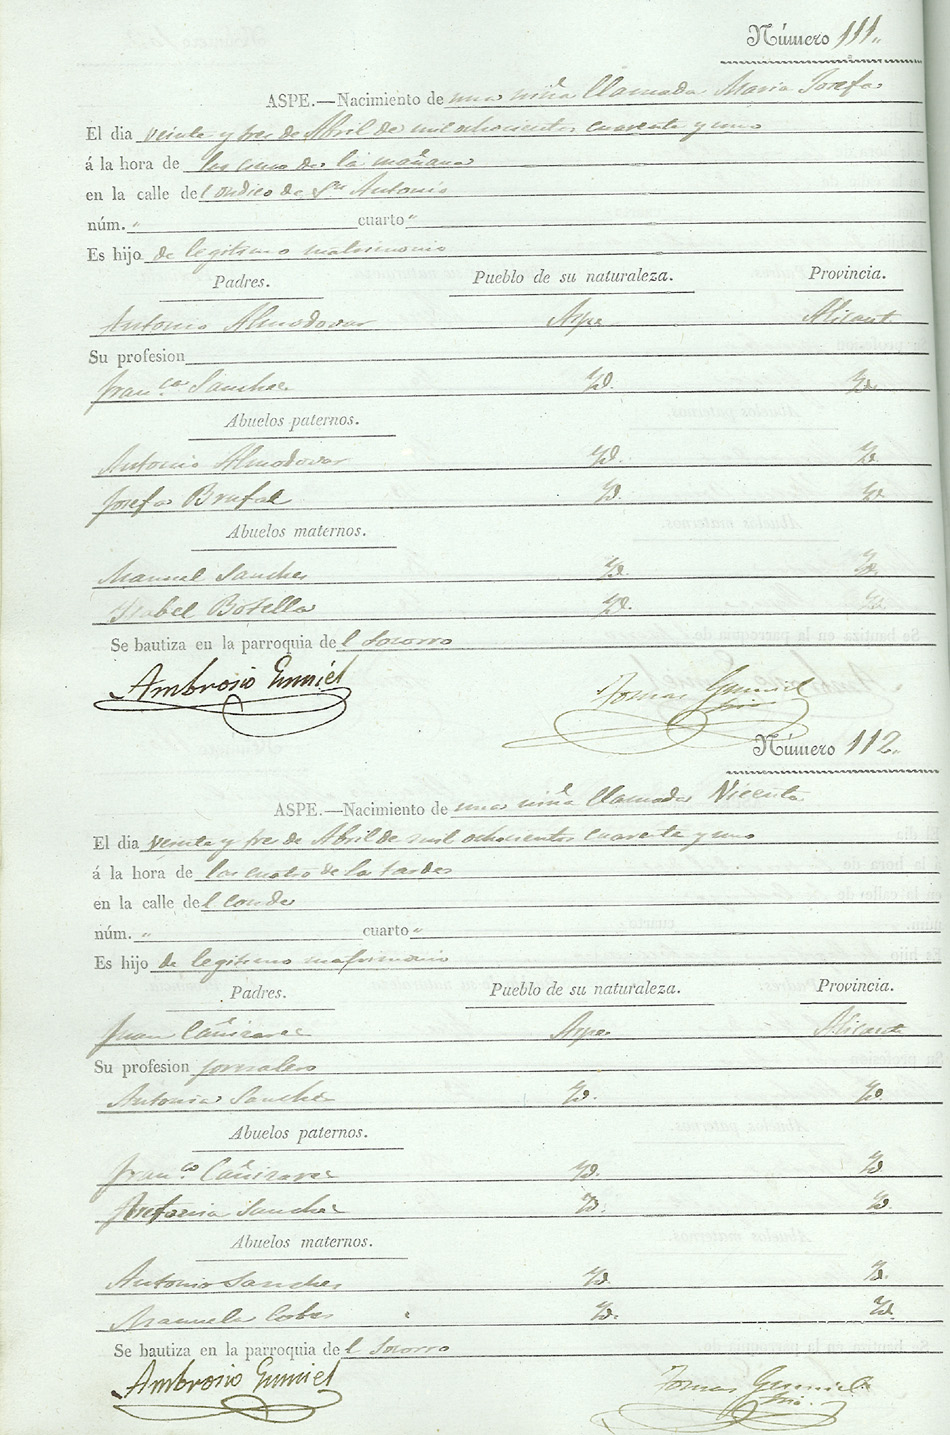 Número 111.
ASPE.—Nacimiento de una niña llamada Maria Josefa
El dia veinte y tres de Abril de mil ochocientos cuarenta y uno
á la hora de las de la mañana
en la calle del de Sn Antonio
núm. " cuarto "
Es hijo de legitimo matrimonio
Padres. Pueblo de su naturaleza. Provincia.
Antonio Almodovar Aspe Alicante
Su profesion
Fran.ca Sanchez Yd. Yd.
Abuelos paternos.
Antonio Almodovar Yd. Yd.
Josefa Brufal Yd. Yd.
Abuelos maternos.
Manuel Sanchez Yd. Yd.
Ysabel Botella Yd. Yd.
Se bautiza en la parroquia del Socorro
Ambrosio Gumiel Tomas Gumiel
Número 112.
ASPE.—Nacimiento de una niña llamada Vicenta
El dia veinte y tres de Abril de mil ochocientos cuarenta y uno
á la hora de las cuatro de la tarde
en la calle del Conde
núm. " cuarto "
Es hijo de legitimo matrimonio
Padres. Pueblo de su naturaleza. Provincia.
Juan Cañizarez Aspe Alicante
Su profesion jornalero
Antonia Sanchez Yd. Yd.
Abuelos paternos.
Fran.co Cañizarez Yd. Yd.
Sanchez Yd. Yd.
Abuelos maternos.
Antonio Sanchez Yd. Yd.
Manuela Yd. Yd.
Se bautiza en la parroquia del Socorro
Ambrosio Gumiel Tomas Gumiel